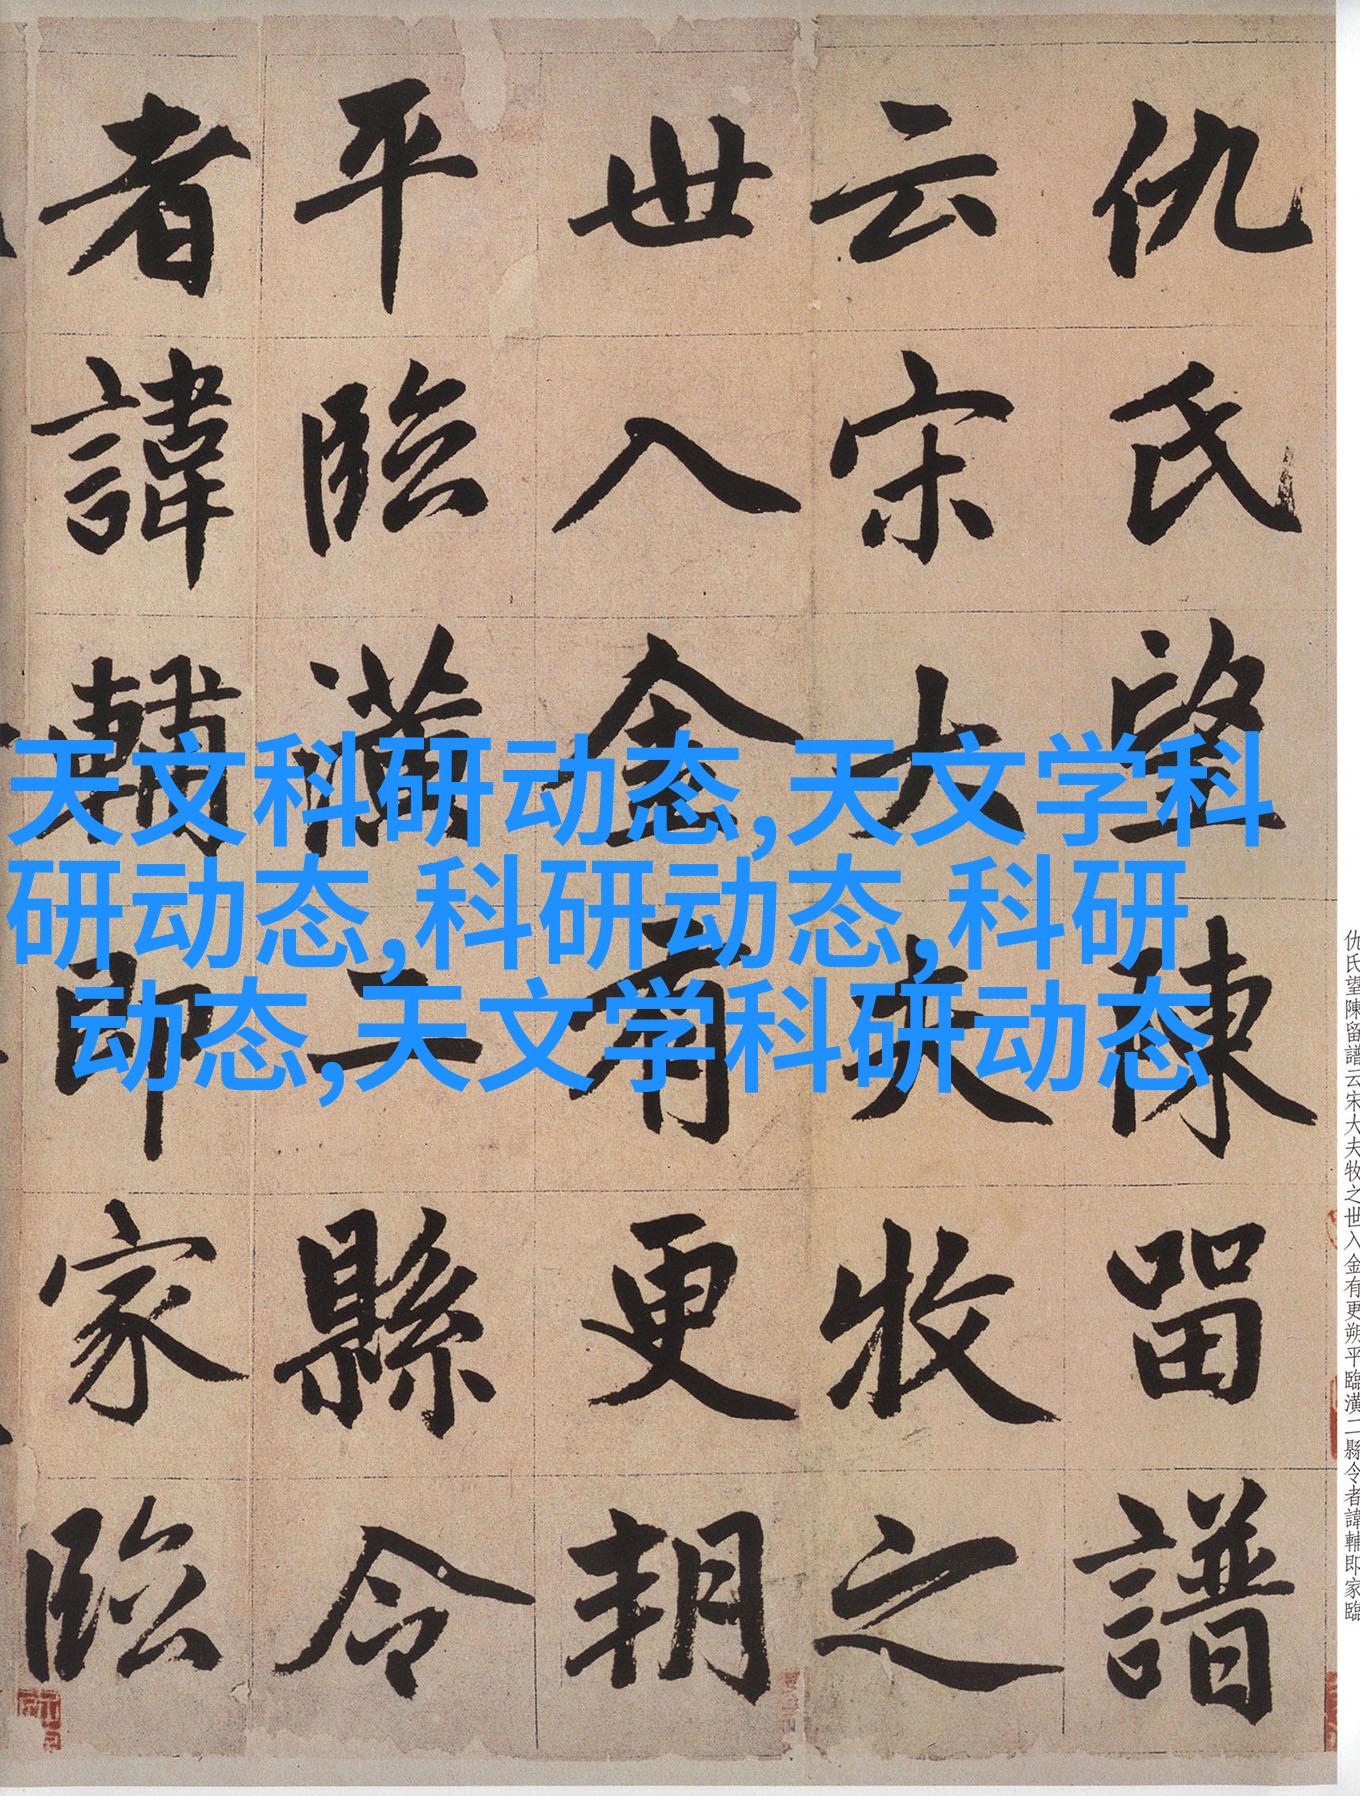 仇氏望陳留譜
云宋大夫牧之
世入金有更朔
平臨潢二縣令
者諱輔即家臨
天文科研动态,天文学科
研动态,科研动态,科研
动态,天文学科研动态
仇氏望陳留譜云宋大夫牧之世入金有更朔平臨潢二縣令者諱輔即家臨